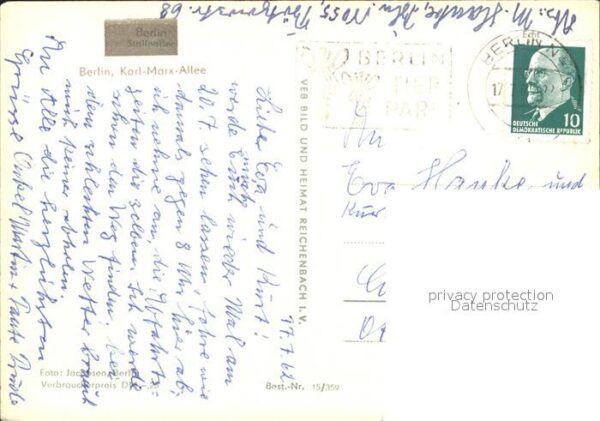 Abs: M. Hanke, Bln. No 55, Bötzowstr. 68
Berlin
Stalinallee
Berlin, Karl-Marx-Allee
17.7.62
Liebe Eva und Kurt!
werde Euch wieder Mal am
20.7. sehen lassen, fahre wie
damals gegen 8 Uhr hier ab,
ich nehme an, die Abfahrts-
zeiten die selben. Ich werde
schon den Weg finden, bei
dem schlechten Wetter braucht
mich keiner abholen.
An Alle die herzlichsten
Grüsse Onkel Martin + Tante Trude
Foto: Jacobsen, Berlin
Verbraucherpreis DM -,25
Best.-Nr. 15/359
VEB BILD UND HEIMAT REICHENBACH I. V.
BERLIN
TIER
PARK
BERLIN N
17
Echt
10
DEUTSCHE
DEMOKRATISCHE REPUBLIK
An
Eva Hanke und
Kur
privacy protection
Datenschutz